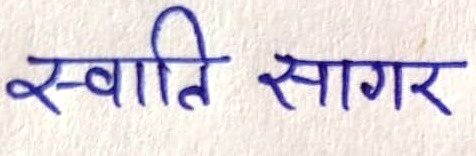 स्वाति सागर